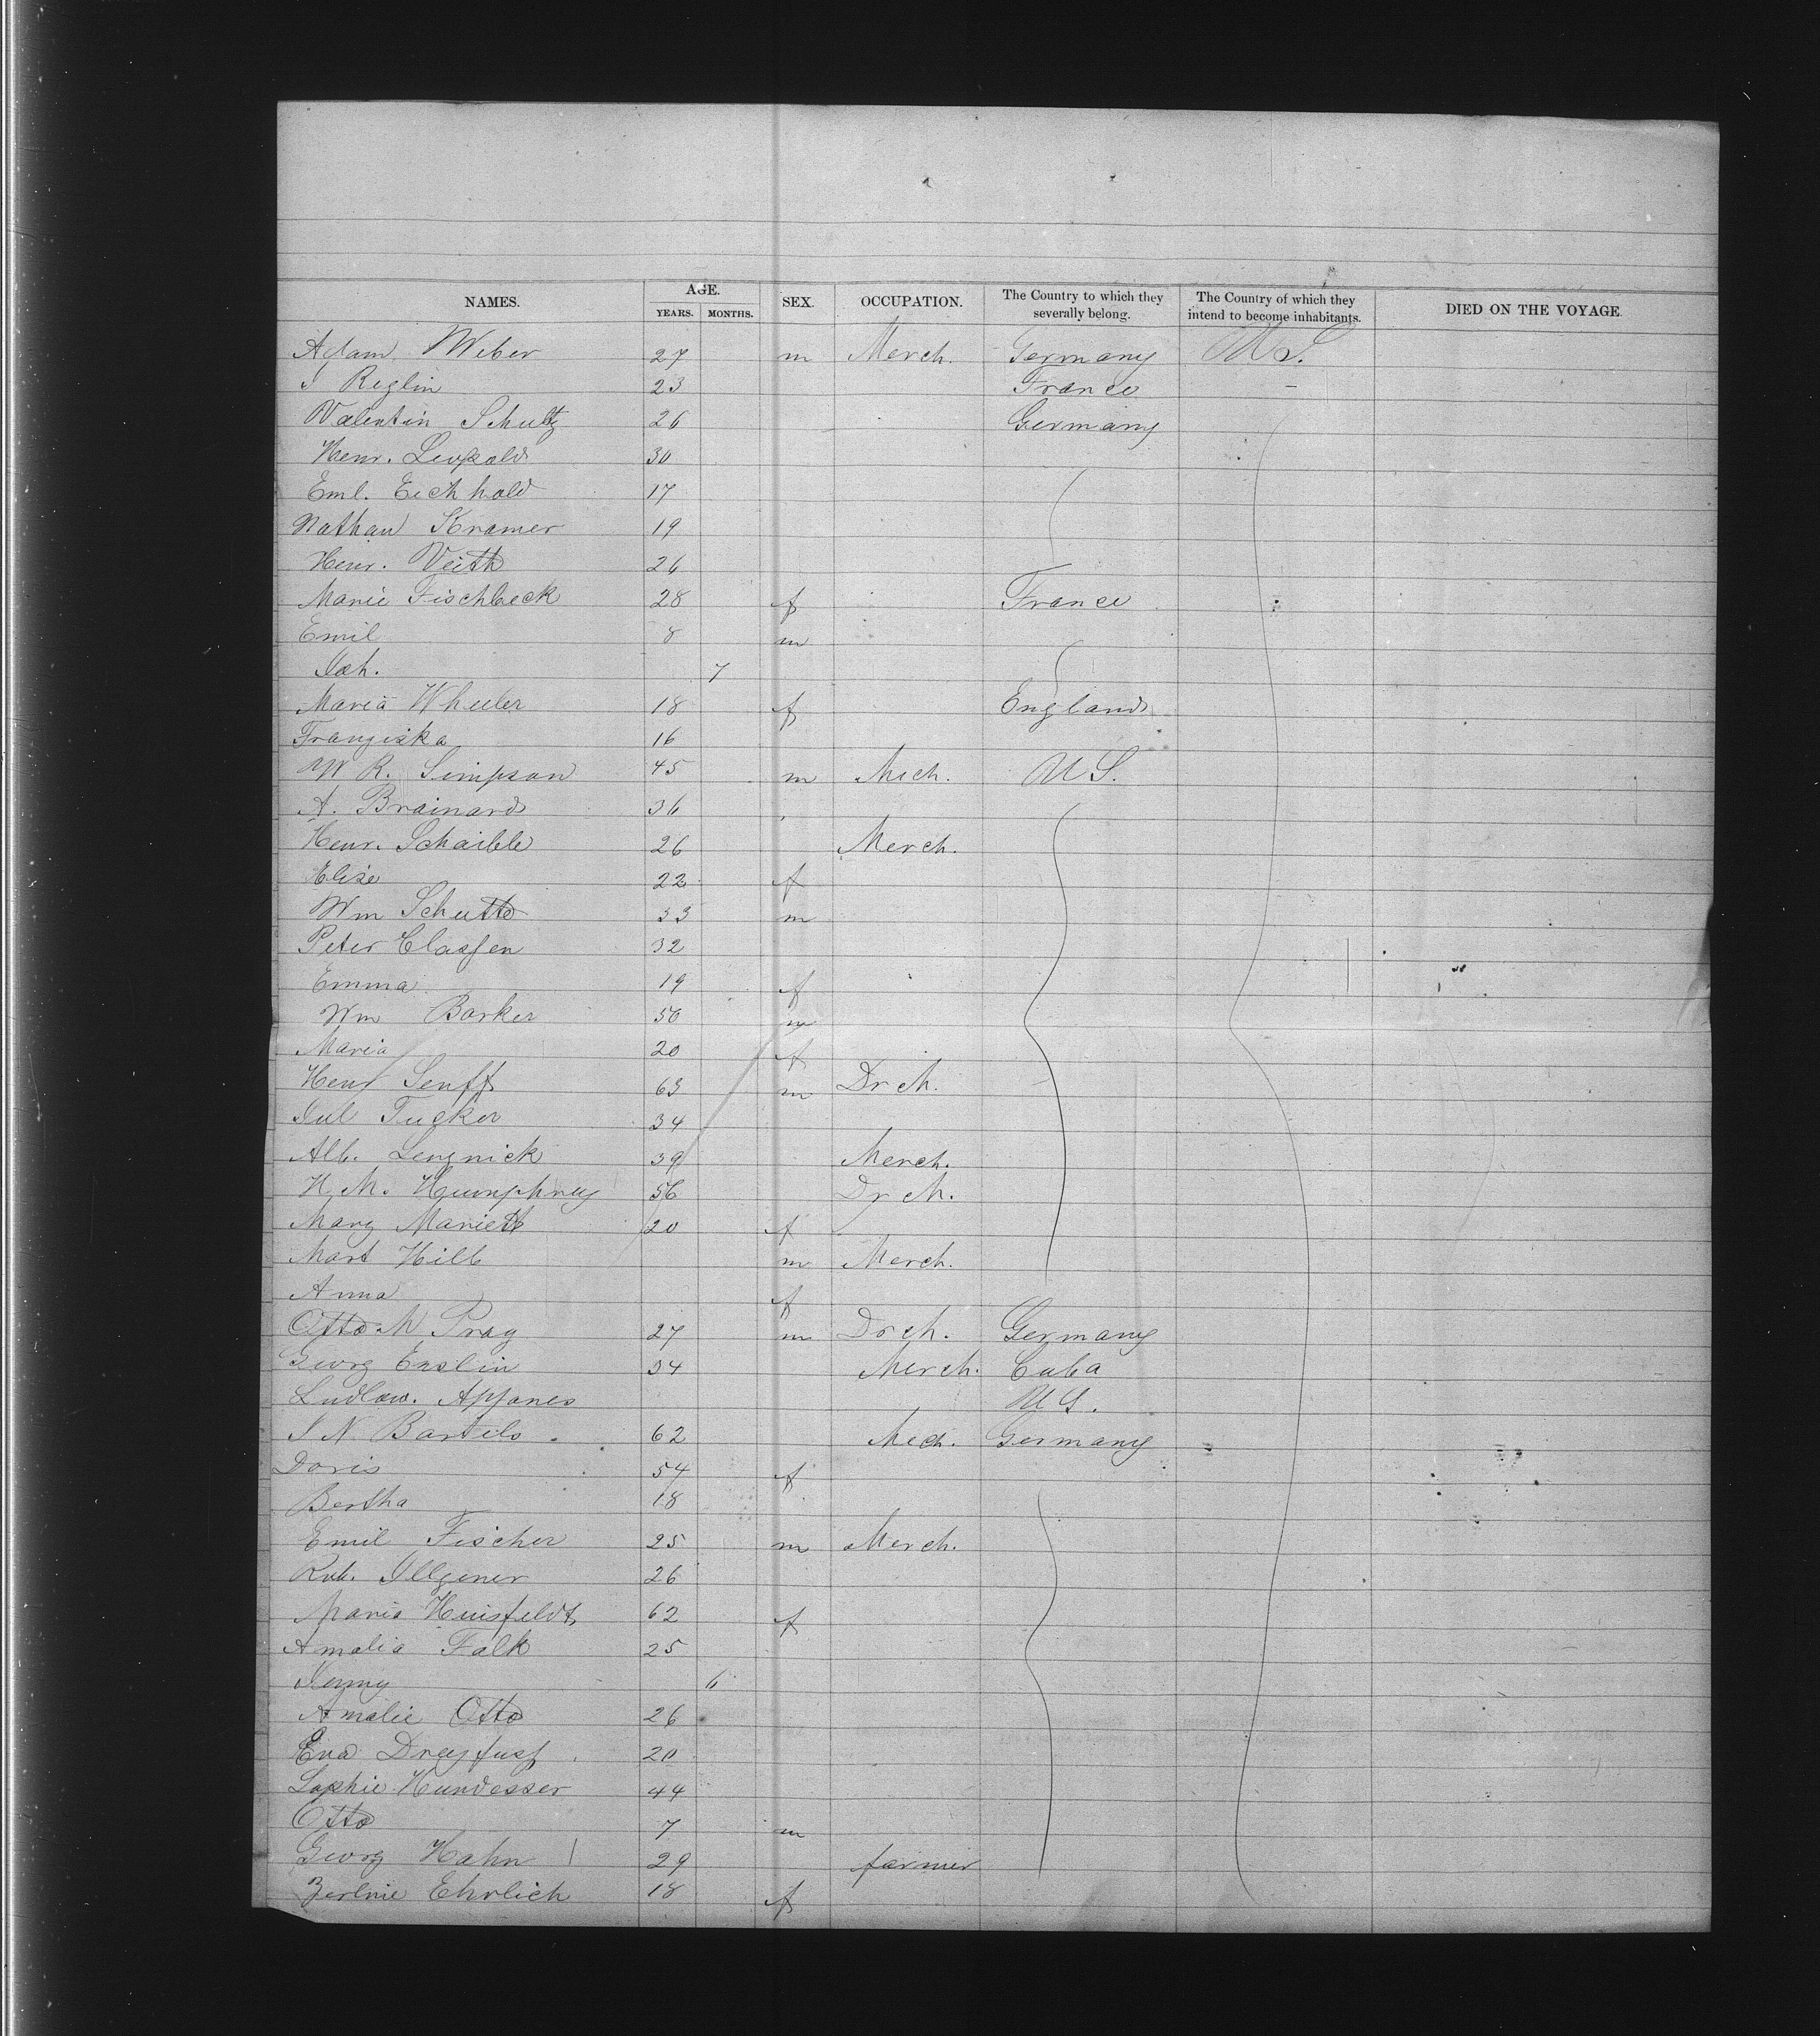 NAMES. AGE. SEX. OCCUPATION. The Country to which they severally belong. The Country of which they intend to become inhabitants. DIED ON THE VOYAGE.
YEARS. MONTHS.
Adam Weber 27 m Merch. Germany U S.
J Reglin 23 France -
Valentin Schultz 26 Germany
Henr. Leopold 30
Eml. Eichhold 17
Nathan Kramer 19
Henr. Veith 26
Marie Fischbeck 28 f France
Emil 8 m
Joh. 7
Maria Wheeler 18 f England
Franziska 16
W R. Simpson 45 m Mech. U S.
A. Brainard 36
Henr. Schaible 26 Merch.
Elise 22 f
Wm Schutte 33 m
Peter Classen 32
Emma 19 f
Wm Barker 50 m
Maria 20 f
Henr Senff 63 m Drch.
Jul Tucker 34
Alb. Lengnick 39 Merch.
H. M. Humphrey 56 Drch.
Mary Mariett 20 f
Mart Hill m Merch.
Anna f
Otto N Pray 27 m Drch. Germany
Georg Enslin 34 Merch. Cuba
Ludlow. U S.
J N. Bartels. 62 Mech. Germany
Doris 54 f
Bertha 18
Emil Fischer 25 m Merch.
Rob. Illgener 26
Maria 62 f
Amalia Falk 25
Jenny 6
Amalie Otto 26
Eva Dreyfuss 20
Sophie Hundesser 44
Otto 7 m
Georg Hahn 29 farmer
Ehrlich 18 f